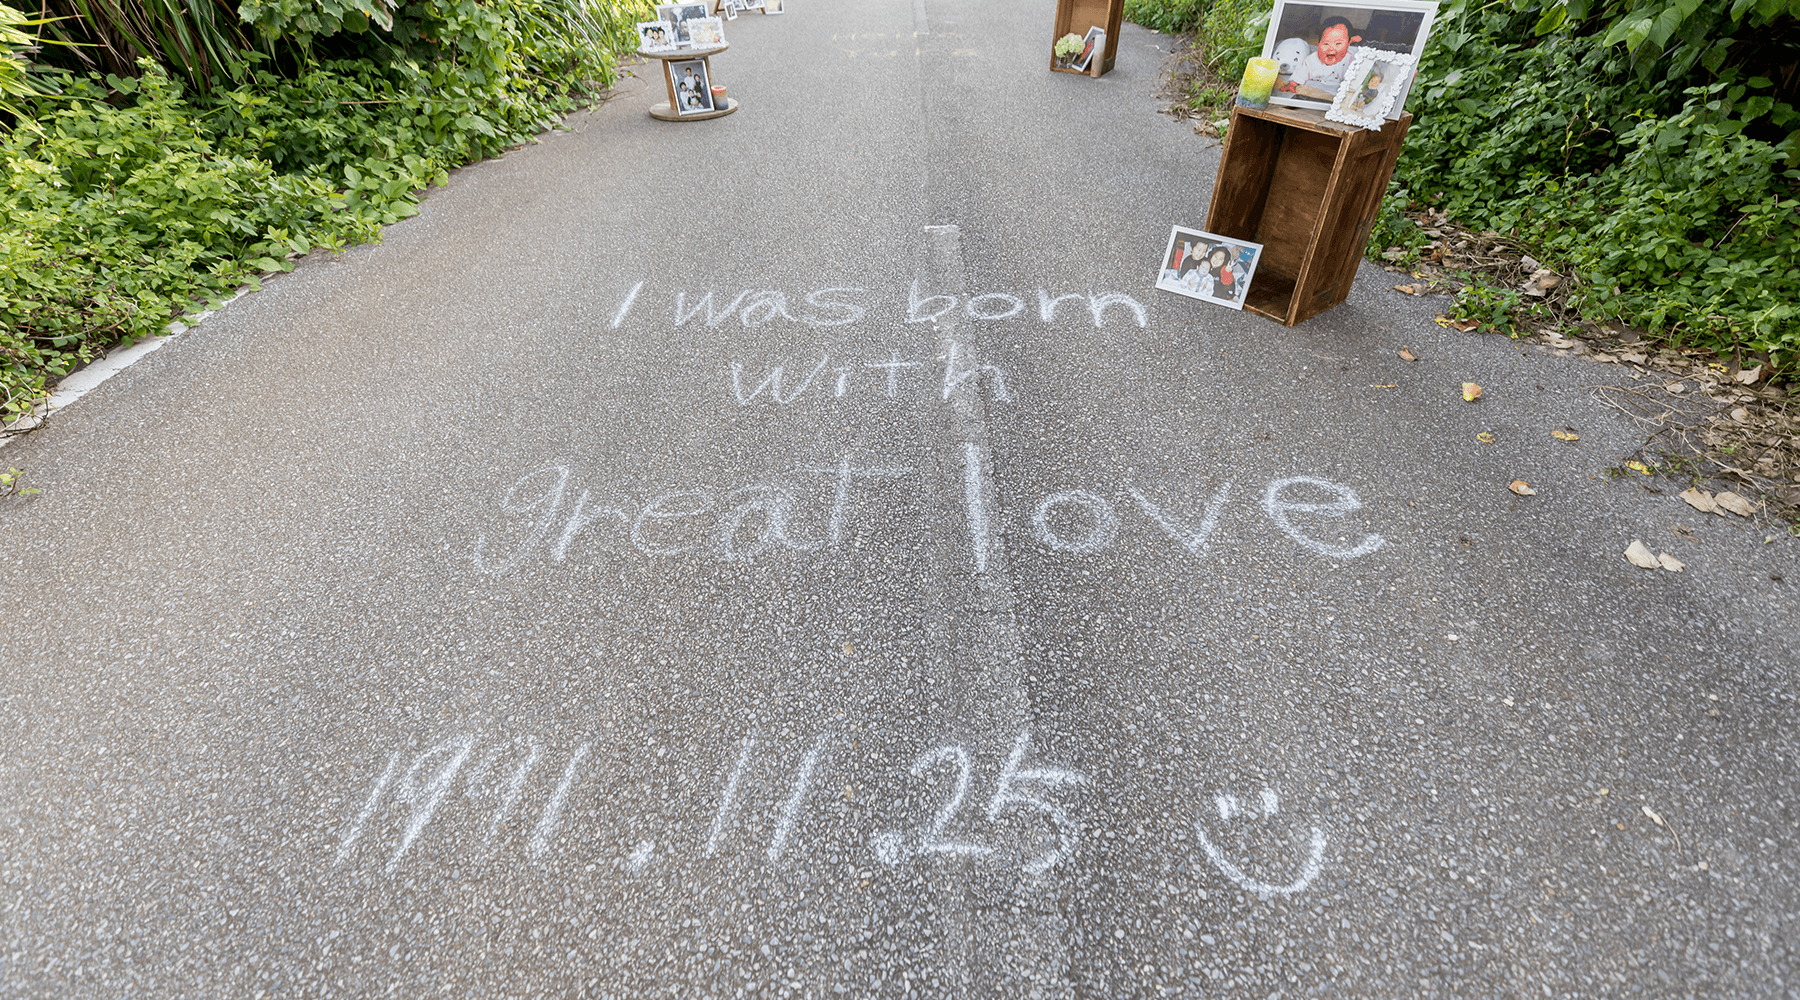 I was born
with
great love
1991.11.25